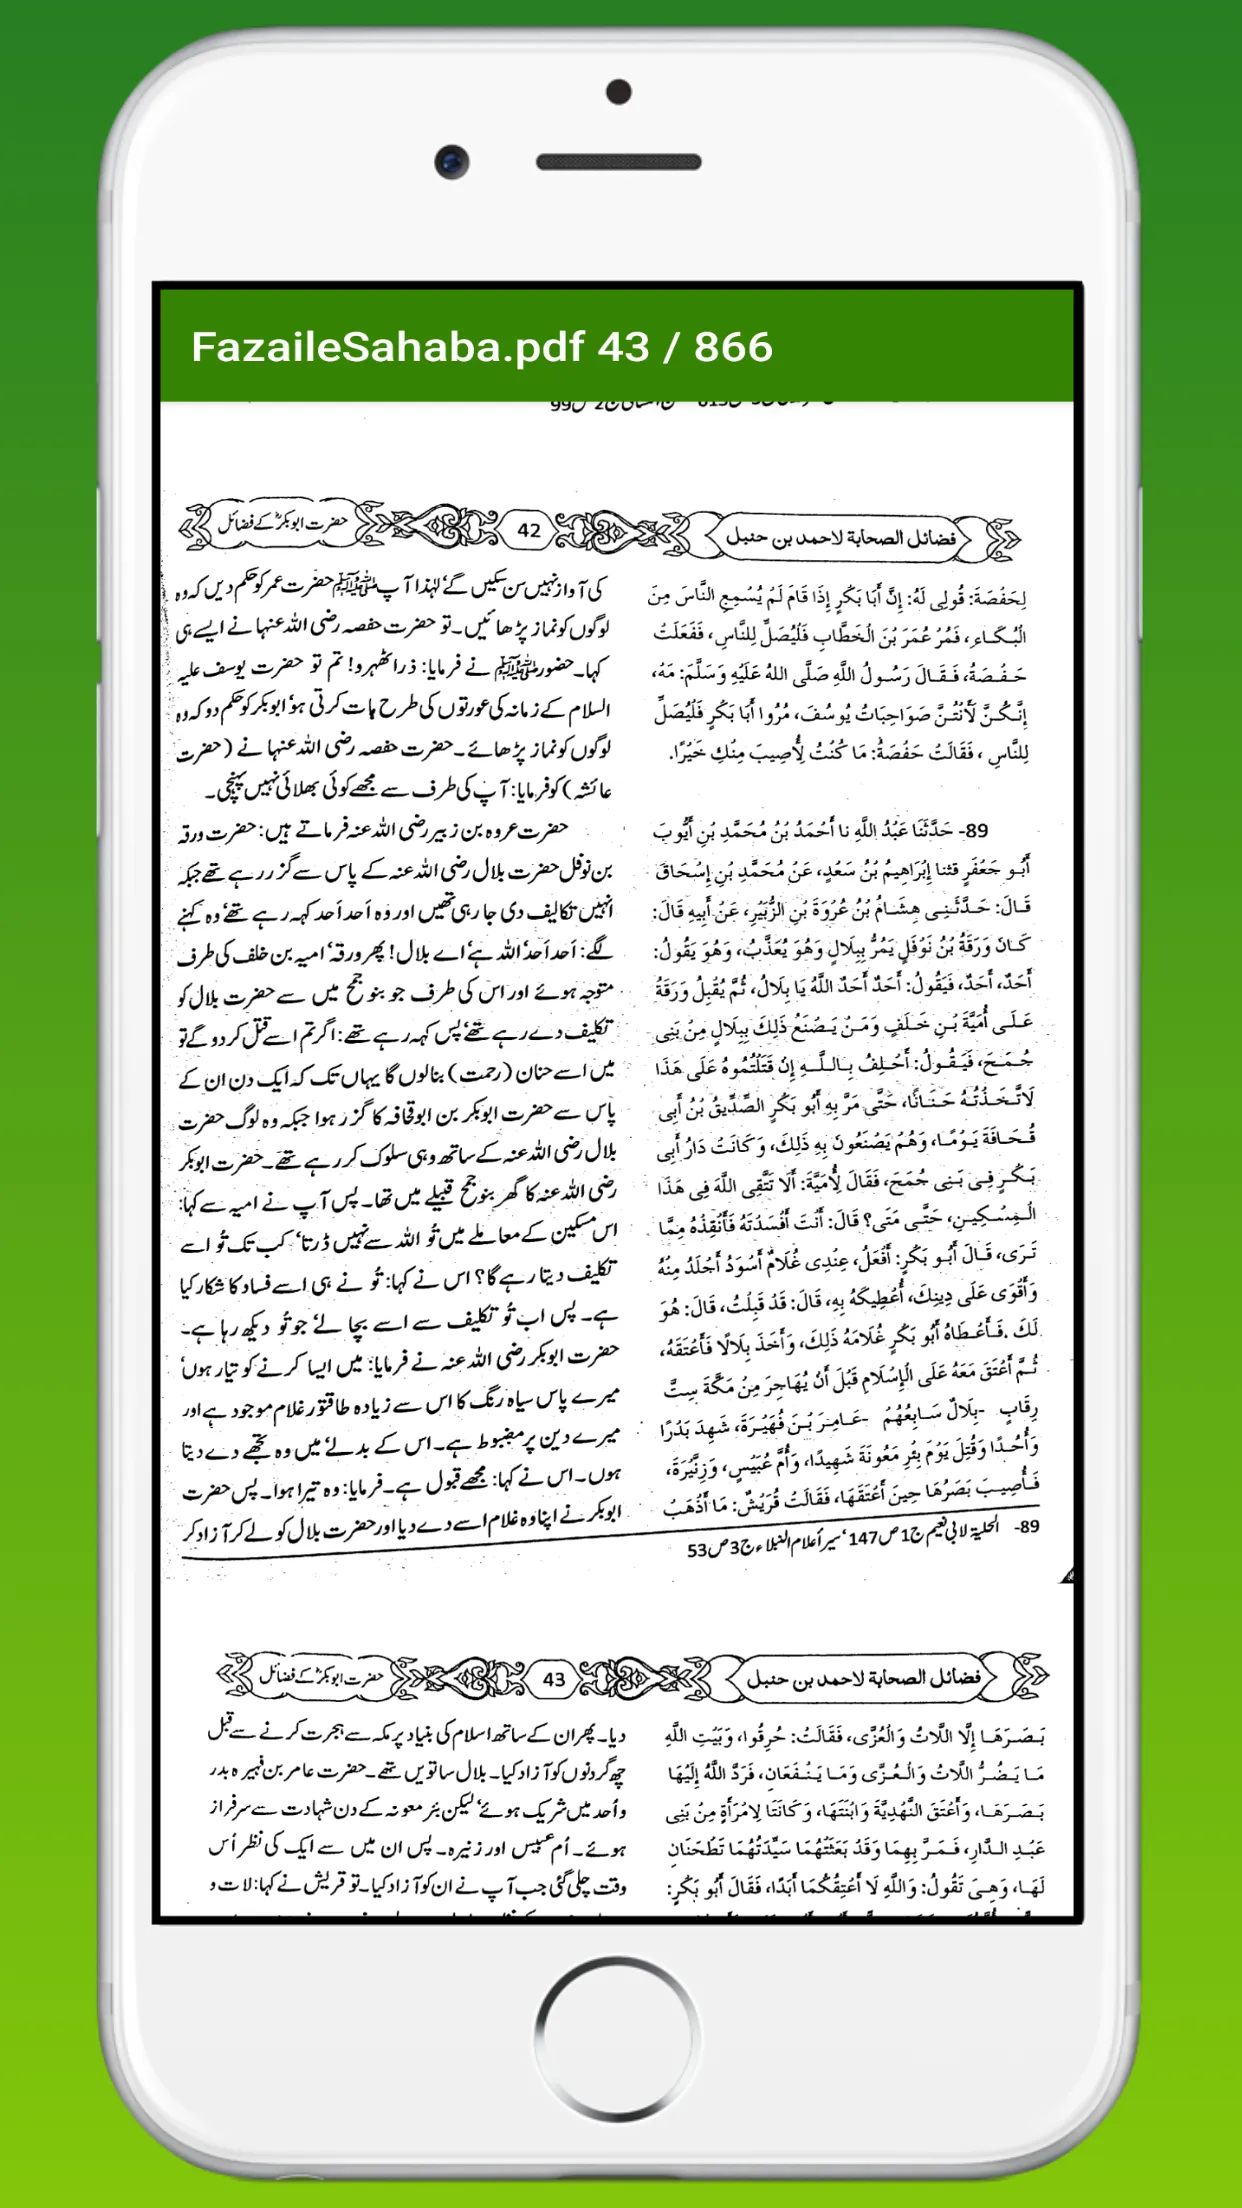 FazaileSahaba.pdf 43 / 866
فضائل الصحابة لاحمد بن حنبل
42
حضرت ابوبکرؓ کے فضائل
لِحَفْصَةَ: قُولِى لَهُ: إِنَّ أَبَا بَكْرٍ إِذَا قَامَ لَمْ يُسْمِعِ النَّاسَ مِنَ
الْبُكَاءِ، فَمُرْ عُمَرَ بْنَ الْخَطَّابِ فَلْيُصَلِّ لِلنَّاسِ، فَفَعَلَتْ
حَفْصَةُ، فَقَالَ رَسُولُ اللَّهِ صَلَّى اللهُ عَلَيْهِ وَسَلَّمَ: مَهْ،
إِنَّكُنَّ لَأَنْتُنَّ صَوَاحِبَاتُ يُوسُفَ، مُرُوا أَبَا بَكْرٍ فَلْيُصَلِّ
لِلنَّاسِ، فَقَالَتْ حَفْصَةُ: مَا كُنْتُ لِأُصِيبَ مِنْكِ خَيْرًا.
89- حَدَّثَنَا عَبْدُ اللَّهِ نا أَحْمَدُ بْنُ مُحَمَّدِ بْنِ أَيُّوبَ
أَبُو جَعْفَرٍ قثنا إِبْرَاهِيمُ بْنُ سَعْدٍ، عَنْ مُحَمَّدِ بْنِ إِسْحَاقَ
قَالَ: حَدَّثَنِى هِشَامُ بْنُ عُرْوَةَ بْنِ الزُّبَيْرِ، عَنْ أَبِيهِ قَالَ:
كَانَ وَرَقَةُ بْنُ نَوْفَلٍ يَمُرُّ بِبِلَالٍ وَهُوَ يُعَذَّبُ، وَهُوَ يَقُولُ:
أَحَدٌ، أَحَدٌ، فَيَقُولُ: أَحَدٌ أَحَدٌ اللَّهُ يَا بِلَالُ، ثُمَّ يُقْبِلُ وَرَقَةُ
عَلَى أُمَيَّةَ بْنِ خَلَفٍ وَمَنْ يَصْنَعُ ذَلِكَ بِبِلَالٍ مِنْ بَنِى
جُمَحَ، فَيَقُولُ: أَحْلِفُ بِاللَّهِ إِنْ قَتَلْتُمُوهُ عَلَى هَذَا
لَأَتَّخِذَنَّهُ حَنَانًا، حَتَّى مَرَّ بِهِ أَبُو بَكْرٍ الصِّدِّيقُ بْنُ أَبِى
قُحَافَةَ يَوْمًا، وَهُمْ يَصْنَعُونَ بِهِ ذَلِكَ، وَكَانَتْ دَارُ أَبِى
بَكْرٍ فِى بَنِى جُمَحَ، فَقَالَ لِأُمَيَّةَ: أَلَا تَتَّقِى اللَّهَ فِى هَذَا
الْمِسْكِينِ، حَتَّى مَتَى؟ قَالَ: أَنْتَ أَفْسَدْتَهُ فَأَنْقِذْهُ مِمَّا
تَرَى، قَالَ أَبُو بَكْرٍ: أَفْعَلُ، عِنْدِى غُلَامٌ أَسْوَدُ أَجْلَدُ مِنْهُ
وَأَقْوَى عَلَى دِينِكَ، أُعْطِيكَهُ بِهِ، قَالَ: قَدْ قَبِلْتُ، قَالَ: هُوَ
لَكَ، فَأَعْطَاهُ أَبُو بَكْرٍ غُلَامَهُ ذَلِكَ، وَأَخَذَ بِلَالًا فَأَعْتَقَهُ،
ثُمَّ أَعْتَقَ مَعَهُ عَلَى الْإِسْلَامِ قَبْلَ أَنْ يُهَاجِرَ مِنْ مَكَّةَ سِتَّ
رِقَابٍ -بِلَالٌ سَابِعُهُمْ -عَامِرَ بْنَ فُهَيْرَةَ، شَهِدَ بَدْرًا
وَأُحُدًا وَقُتِلَ يَوْمَ بِئْرِ مَعُونَةَ شَهِيدًا، وَأُمَّ عُبَيْسٍ، وَزِنِّيرَةَ،
فَأُصِيبَ بَصَرُهَا حِينَ أَعْتَقَهَا، فَقَالَتْ قُرَيْشٌ: مَا أَذْهَبَ
کی آواز نہیں سن سکیں گے، لہٰذا آپ ﷺ حضرت عمر کو حکم دیں کہ وہ
لوگوں کو نماز پڑھائیں۔ تو حضرت حفصہ رضی اللہ عنہا نے ایسے ہی
کہا۔ حضور ﷺ نے فرمایا: ذرا ٹھہرو! تم تو حضرت یوسف علیہ
السلام کے زمانہ کی عورتوں کی طرح بات کرتی ہو، ابوبکر کو حکم دو کہ وہ
لوگوں کو نماز پڑھائے۔ حضرت حفصہ رضی اللہ عنہا نے (حضرت
عائشہ) کو فرمایا: آپ کی طرف سے مجھے کوئی بھلائی نہیں پہنچی۔
حضرت عروہ بن زبیر رضی اللہ عنہ فرماتے ہیں: حضرت ورقہ
بن نوفل حضرت بلال رضی اللہ عنہ کے پاس سے گزر رہے تھے جبکہ
انہیں تکالیف دی جا رہی تھیں اور وہ اَحد اَحد کہہ رہے تھے، وہ کہنے
لگے: اَحد اَحد، اللہ ہے، اے بلال! پھر ورقہ، امیہ بن خلف کی طرف
متوجہ ہوئے اور اس کی طرف جو بنو جمح میں سے حضرت بلال کو
تکلیف دے رہے تھے، پس کہہ رہے تھے: اگر تم اسے قتل کر دو گے تو
میں اسے حنان (رحمت) بنا لوں گا یہاں تک کہ ایک دن ان کے
پاس سے حضرت ابوبکر بن ابوقحافہ کا گزر ہوا جبکہ وہ لوگ حضرت
بلال رضی اللہ عنہ کے ساتھ وہی سلوک کر رہے تھے۔ حضرت ابوبکر
رضی اللہ عنہ کا گھر بنو جمح قبیلے میں تھا۔ پس آپ نے امیہ سے کہا:
اس مسکین کے معاملے میں تُو اللہ سے نہیں ڈرتا، کب تک تُو اسے
تکلیف دیتا رہے گا؟ اس نے کہا: تُو نے ہی اسے فساد کا شکار کیا
ہے۔ پس اب تُو تکلیف سے اسے بچا لے، جو تُو دیکھ رہا ہے۔
حضرت ابوبکر رضی اللہ عنہ نے فرمایا: میں ایسا کرنے کو تیار ہوں،
میرے پاس سیاہ رنگ کا اس سے زیادہ طاقتور غلام موجود ہے اور
میرے دین پر مضبوط ہے۔ اس کے بدلے، میں وہ تجھے دے دیتا
ہوں۔ اس نے کہا: مجھے قبول ہے۔ فرمایا: وہ تیرا ہوا۔ پس حضرت
ابوبکر نے اپنا وہ غلام اسے دے دیا اور حضرت بلال کو لے کر آزاد کر
89- الحلیۃ لابی نعیم ج1ص147، سیر أعلام النبلاء ج3ص53
فضائل الصحابة لاحمد بن حنبل
43
حضرت ابوبکرؓ کے فضائل
بَصَرَهَا إِلَّا اللَّاتُ وَالْعُزَّى، فَقَالَتْ: حُرِقُوا، وَبَيْتِ اللَّهِ
مَا يَضُرُّ اللَّاتُ وَالْعُزَّى وَمَا يَنْفَعَانِ، فَرَدَّ اللَّهُ إِلَيْهَا
بَصَرَهَا، وَأَعْتَقَ النَّهْدِيَّةَ وَابْنَتَهَا، وَكَانَتَا لِامْرَأَةٍ مِنْ بَنِى
عَبْدِ الدَّارِ، فَمَرَّ بِهِمَا وَقَدْ بَعَثَتْهُمَا سَيِّدَتُهُمَا تَطْحَنَانِ
لَهَا، وَهِىَ تَقُولُ: وَاللَّهِ لَا أَعْتِقُكُمَا أَبَدًا، فَقَالَ أَبُو بَكْرٍ:
دیا۔ پھر ان کے ساتھ اسلام کی بنیاد پر مکہ سے ہجرت کرنے سے قبل
چھ گردنوں کو آزاد کیا۔ بلال ساتویں تھے۔ حضرت عامر بن فہیرہ بدر
و اُحد میں شریک ہوئے، لیکن بئر معونہ کے دن شہادت سے سرفراز
ہوئے۔ اُم عبیس اور زنیرہ۔ پس ان میں سے ایک کی نظر اُس
وقت چلی گئی جب آپ نے ان کو آزاد کیا۔ تو قریش نے کہا: لات و